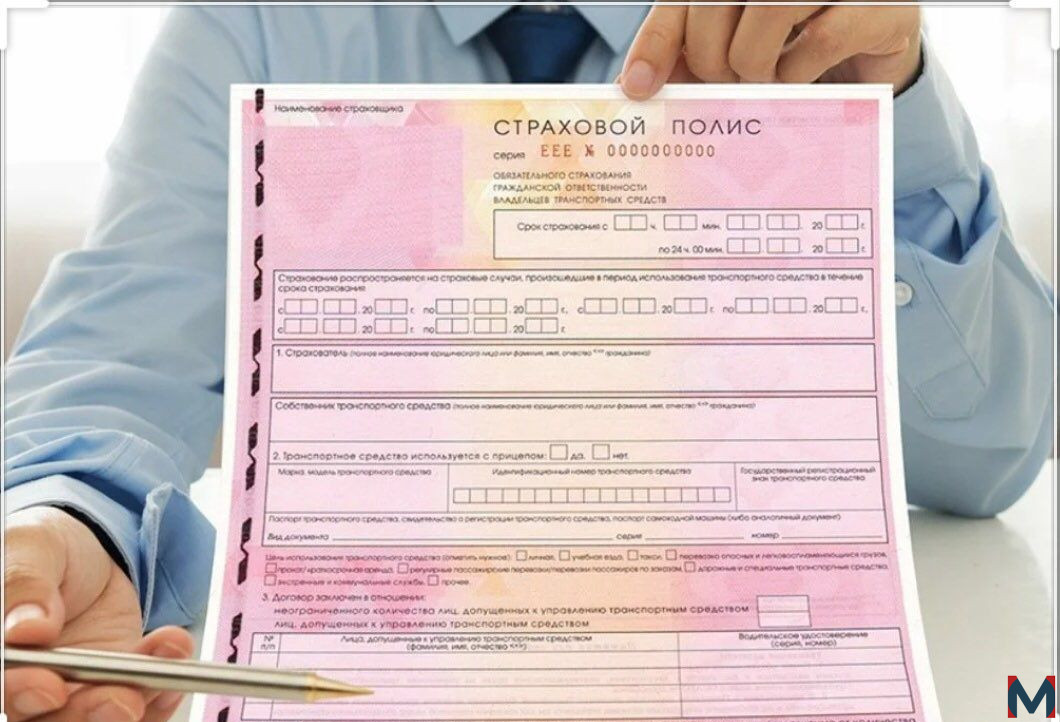 Наименование страховщика
СТРАХОВОЙ ПОЛИС
серия ЕЕЕ № 0000000000
ОБЯЗАТЕЛЬНОГО СТРАХОВАНИЯ
ГРАЖДАНСКОЙ ОТВЕТСТВЕННОСТИ
ВЛАДЕЛЬЦЕВ ТРАНСПОРТНЫХ СРЕДСТВ
Срок страхования с ч. мин. 20 г.
по 24 ч. 00 мин. 20 г.
Страхование распространяется на страховые случаи, произошедшие в период использования транспортного средства в течение
срока страхования
с . . 20 г. по . . 20 г., с . . 20 г. по . . 20 г.,
с . . 20 г. по . . 20 г.
1. Страхователь (полное наименование юридического лица или фамилия, имя, отчество <*> гражданина)
Собственник транспортного средства (полное наименование юридического лица или фамилия, имя, отчество <*> гражданина)
2. Транспортное средство используется с прицепом: да. нет.
Марка, модель транспортного средства Идентификационный номер транспортного средства Государственный регистрационный
знак транспортного средства
Паспорт транспортного средства, свидетельство о регистрации транспортного средства, паспорт самоходной машины (либо аналогичный документ)
Вид документа серия номер
Цель использования транспортного средства (отметить нужное): личная, учебная езда, такси, перевозка опасных и легковоспламеняющихся грузов,
прокат/краткосрочная аренда, регулярные пассажирские перевозки/перевозки пассажиров по заказам, дорожные и специальные транспортные средства,
экстренные и коммунальные службы, прочее.
3. Договор заключен в отношении:
неограниченного количества лиц, допущенных к управлению транспортным средством
лиц, допущенных к управлению транспортным средством
№ п/п Лица, допущенные к управлению транспортным средством
(фамилия, имя, отчество <*>)
Водительское удостоверение
(серия, номер)
M